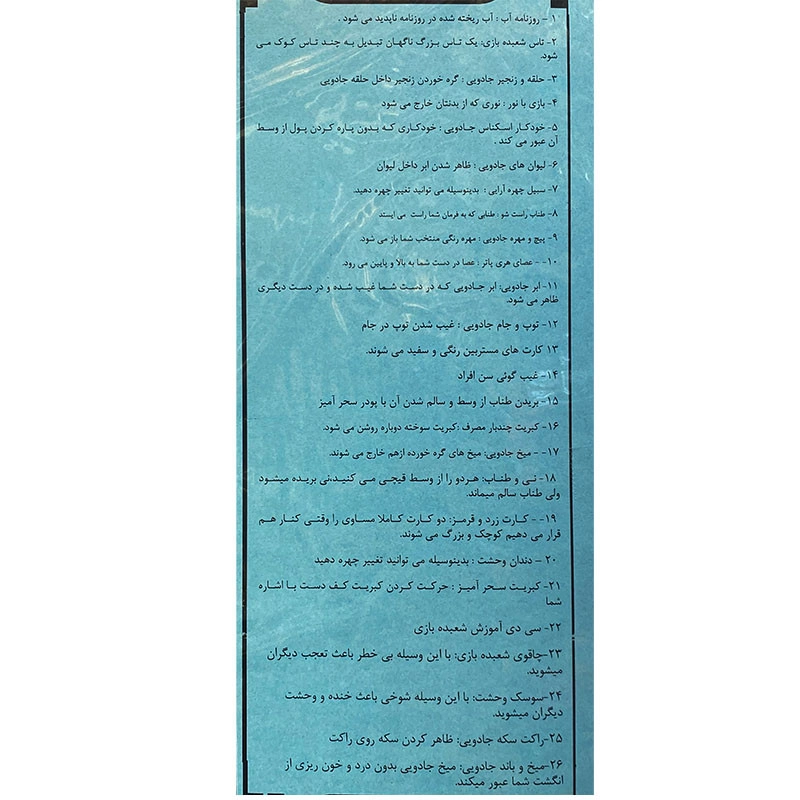 ۱ – روزنامه آب : آب ریخته شده در روزنامه ناپدید می شود .
۲- تاس شعبده بازی: یک تاس بزرگ ناگهان تبدیل به چند تاس کوک می
شود.
۳- حلقه و زنجیر جادویی : گره خوردن زنجیر داخل حلقه جادویی
۴- بازی با نور : نوری که از بدنتان خارج می شود
۵- خودکار اسکناس جادویی : خودکاری که بدون پاره کردن پول از وسط
آن عبور می کند .
۶- لیوان های جادویی : ظاهر شدن ابر داخل لیوان
۷- سبیل چهره آرایی : بدینوسیله می توانید تغییر چهره دهید.
۸- طناب راست شو : طنابی که به فرمان شما راست می ایستد
۹- پیچ و مهره جادویی : مهره رنگی منتخب شما باز می شود.
۱۰- - عصای هری پاتر : عصا در دست شما به بالا و پایین می رود.
۱۱- ابر جادویی: ابر جادویی که در دست شما غیب شده و در دست دیگری
ظاهر می شود.
۱۲- توپ و جام جادویی : غیب شدن توپ در جام
۱۳ کارت های مستربین رنگی و سفید می شوند.
۱۴- غیب گوئی سن افراد
۱۵- بریدن طناب از وسط و سالم شدن آن با پودر سحر آمیز
۱۶- کبریت چندبار مصرف :کبریت سوخته دوباره روشن می شود.
۱۷- - میخ جادویی: میخ های گره خورده ازهم خارج می شوند.
۱۸- نی و طناب: هردو را از وسط قیچی می کنید،نی بریده میشود
ولی طناب سالم میماند.
۱۹- - کارت زرد و قرمز: دو کارت کاملا مساوی را وقتی کنار هم
قرار می دهیم کوچک و بزرگ می شوند.
۲۰ – دندان وحشت : بدینوسیله می توانید تغییر چهره دهید
۲۱- کبریت سحر آمیز : حرکت کردن کبریت کف دست با اشاره
شما
۲۲- سی دی آموزش شعبده بازی
۲۳-چاقوی شعبده بازی: با این وسیله بی خطر باعث تعجب دیگران
میشوید.
۲۴-سوسک وحشت: با این وسیله شوخی باعث خنده و وحشت
دیگران میشوید.
۲۵-راکت سکه جادویی: ظاهر کردن سکه روی راکت
۲۶-میخ و باند جادویی: میخ جادویی بدون درد و خون ریزی از
انگشت شما عبور میکند.